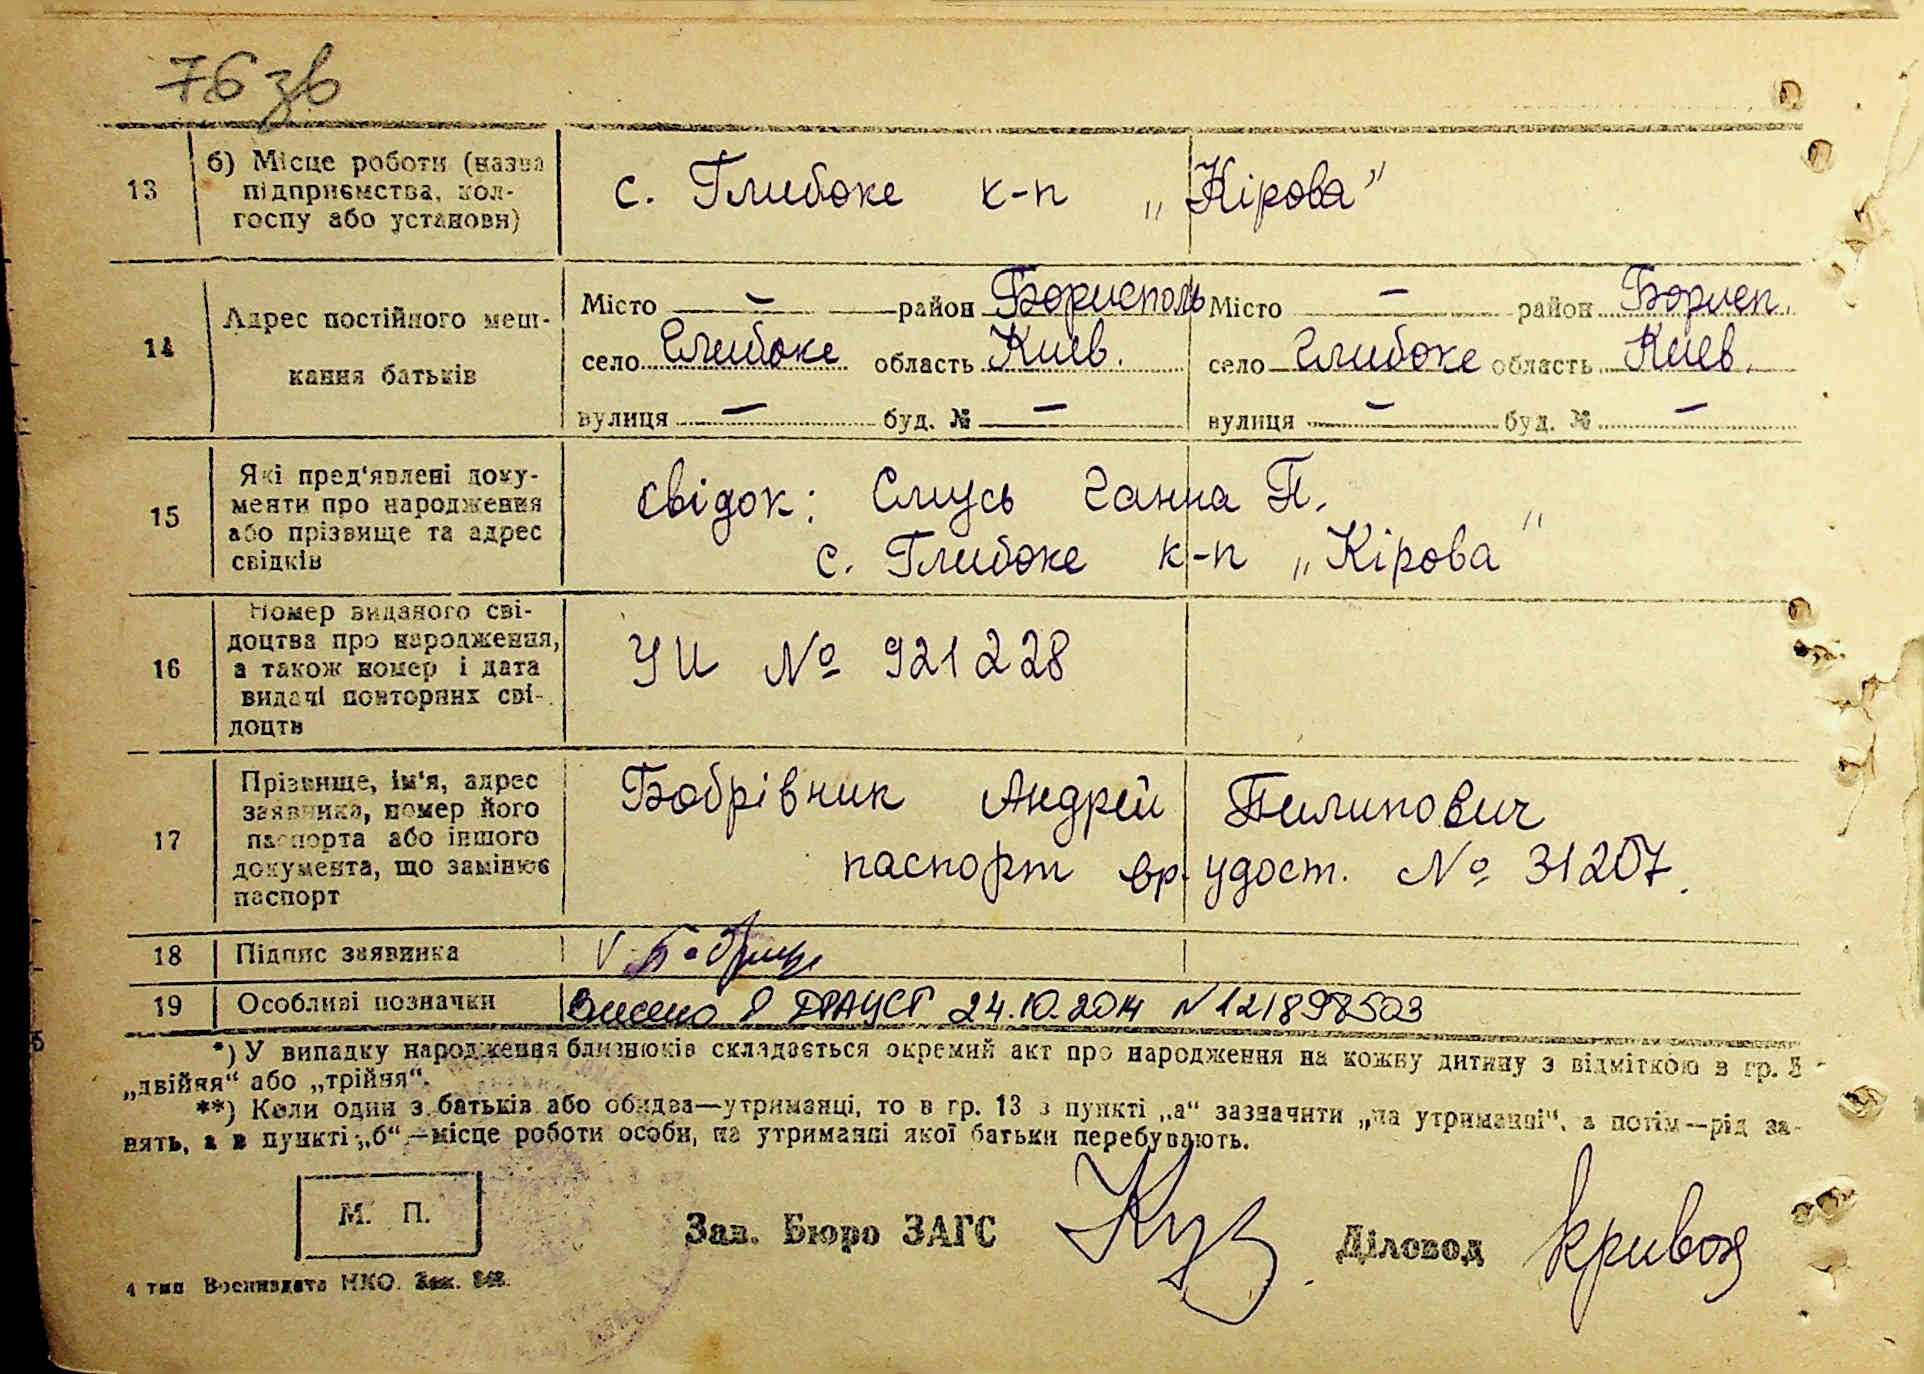 76 зв
13 б) Місце роботи (назва підприємства, колгоспу або установи) с. Глибоке к-п „Кірова”
14 Адрес постійного мешкання батьків
Місто — район Борисполь Місто — район Борисп.
село Глибоке область Киев. село Глибоке область Киев.
вулиця — буд. № — вулиця — буд. № —
15 Які пред'явлені документи про народження або прізвище та адрес свідків
свідок: Смусь Ганна П.
с. Глибоке к-п „Кірова”
16 Номер виданого свідоцтва про народження, а також номер і дата видачі повторних свідоцтв
УИ № 921228
17 Прізвище, ім'я, адрес заявника, номер його паспорта або іншого документа, що замінює паспорт
Бобрівник Андрей Пилипович
паспорт вр. удост. № 31207.
18 Підпис заявника
19 Особливі позначки Внесено в ДРАЦСГ 24.10.2014 N 121898503
*) У випадку народження близнюків складається окремий акт про народження на кожну дитину з відміткою в гр. 3
„двійня“ або „трійня“.
**) Коли один з батьків або обидва—утриманці, то в гр. 13 в пункті „а“ зазначити „на утриманні“, а потім—рід за-
нять, а в пункті „б“—місце роботи особи, на утриманні якої батьки перебувають.
М. П.
Зав. Бюро ЗАГС Діловод
4 тип Воениздата НКО. Зак.